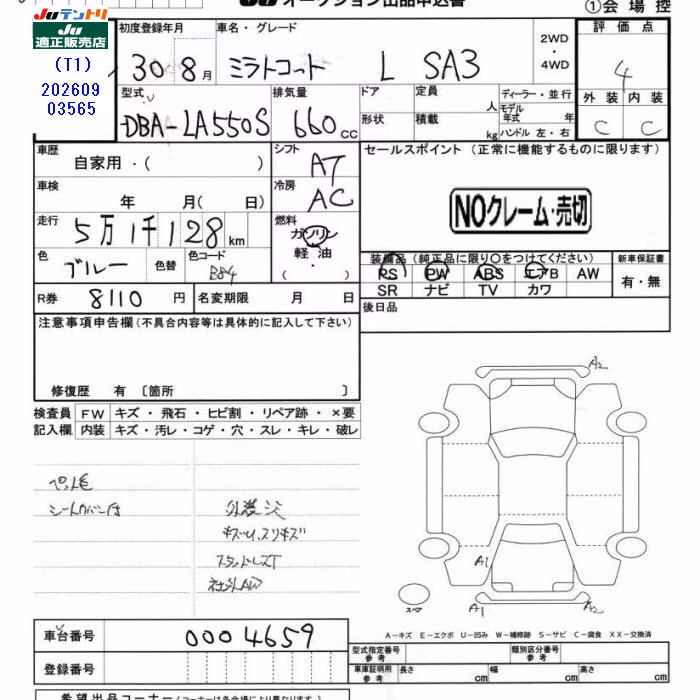 オークション出品申込書
①会場控
JUテントリ
JU
適正販売店
(T1)
202609
03565
初度登録年月
30年8月
車名・グレード
ミラトコット L SA3
2WD
・
4WD
評価点
4
外装 内装
C C
型式
DBA-LA550S
排気量
660cc
ドア
形状
定員 人
積載 kg
ディーラー・並行
モデル年式 年
ハンドル 左・右
車歴
自家用・( )
シフト
AT
セールスポイント(正常に機能するものに限ります)
NOクレーム・売切
車検 年 月(日)
冷房
AC
走行
5万1千128km
燃料
ガソリン
軽油
(・)
色
ブルー
色替
色コード
B84
装備品(純正品に限り○をつけてください)
新車保証書
PS PW ABS エアB AW
有・無
SR ナビ TV カワ
R券 8110円
名変期限 月 日
後日品
注意事項申告欄(不具合内容等は具体的に記入して下さい)
修復歴 有〔箇所 〕
検査員 FW キズ・飛石・ヒビ割・リペア跡・×要
記入欄 内装 キズ・汚レ・コゲ・穴・スレ・キレ・破レ
ペット毛
シートカバー付
キズU,スリキズ
スタッドレスT
社外AW
A2
A1
A1
A2
スペア
A-キズ E-エクボ U-凹み W-補修跡 S-サビ C-腐食 XX-交換済
車台番号 0004659
登録番号
型式指定番号
参考
類別区分番号
参考
車庫証明用
参考
長さ cm
幅 cm
高さ cm
希望出品コーナー(コーナーは各会場により異なります。)